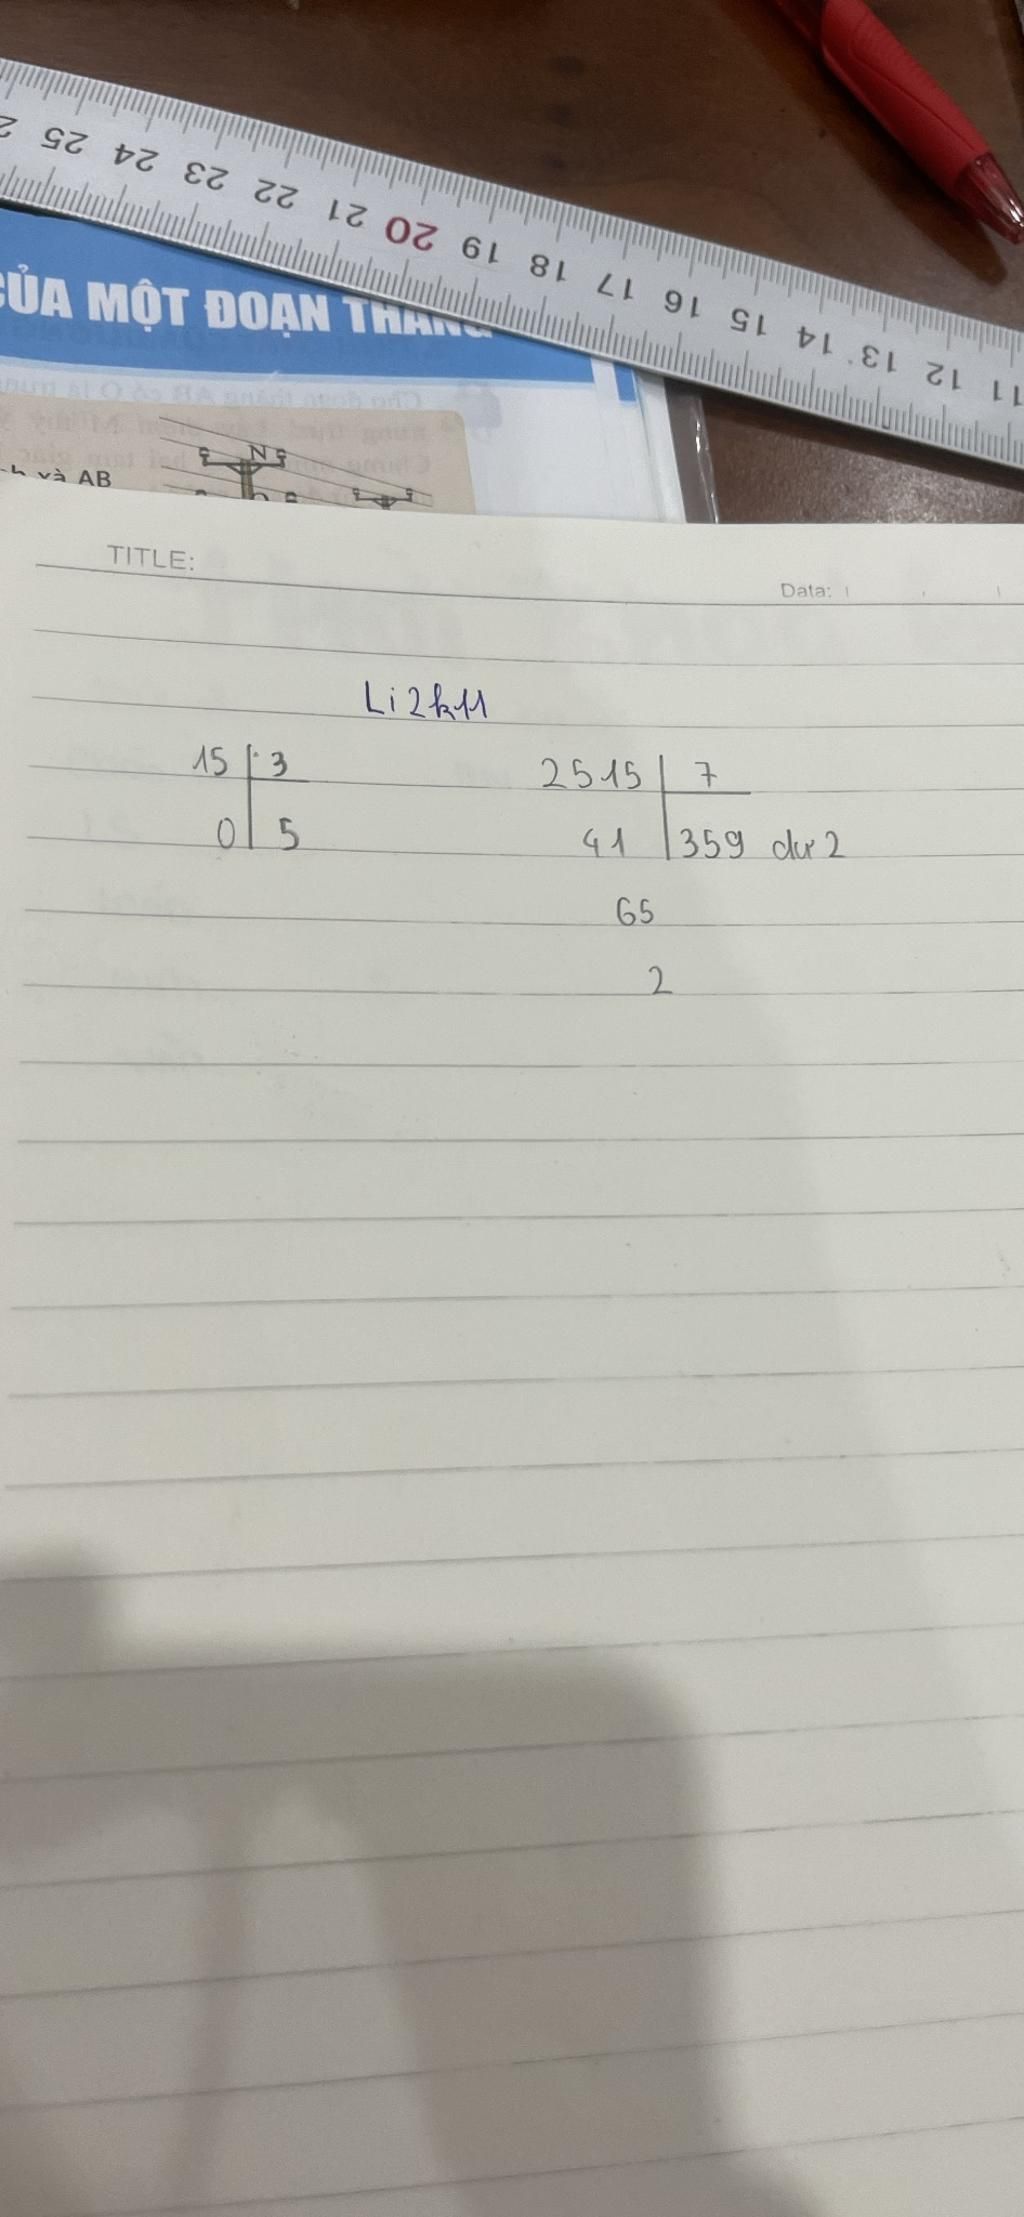 25 24 23 22 21 20 19 18 17 16 15 14 13 12 11
CỦA MỘT ĐOẠN THẲNG
N
và AB
TITLE:
Data:
Li2k11
15 3
0 5
2515 7
41 359 dư 2
65
2